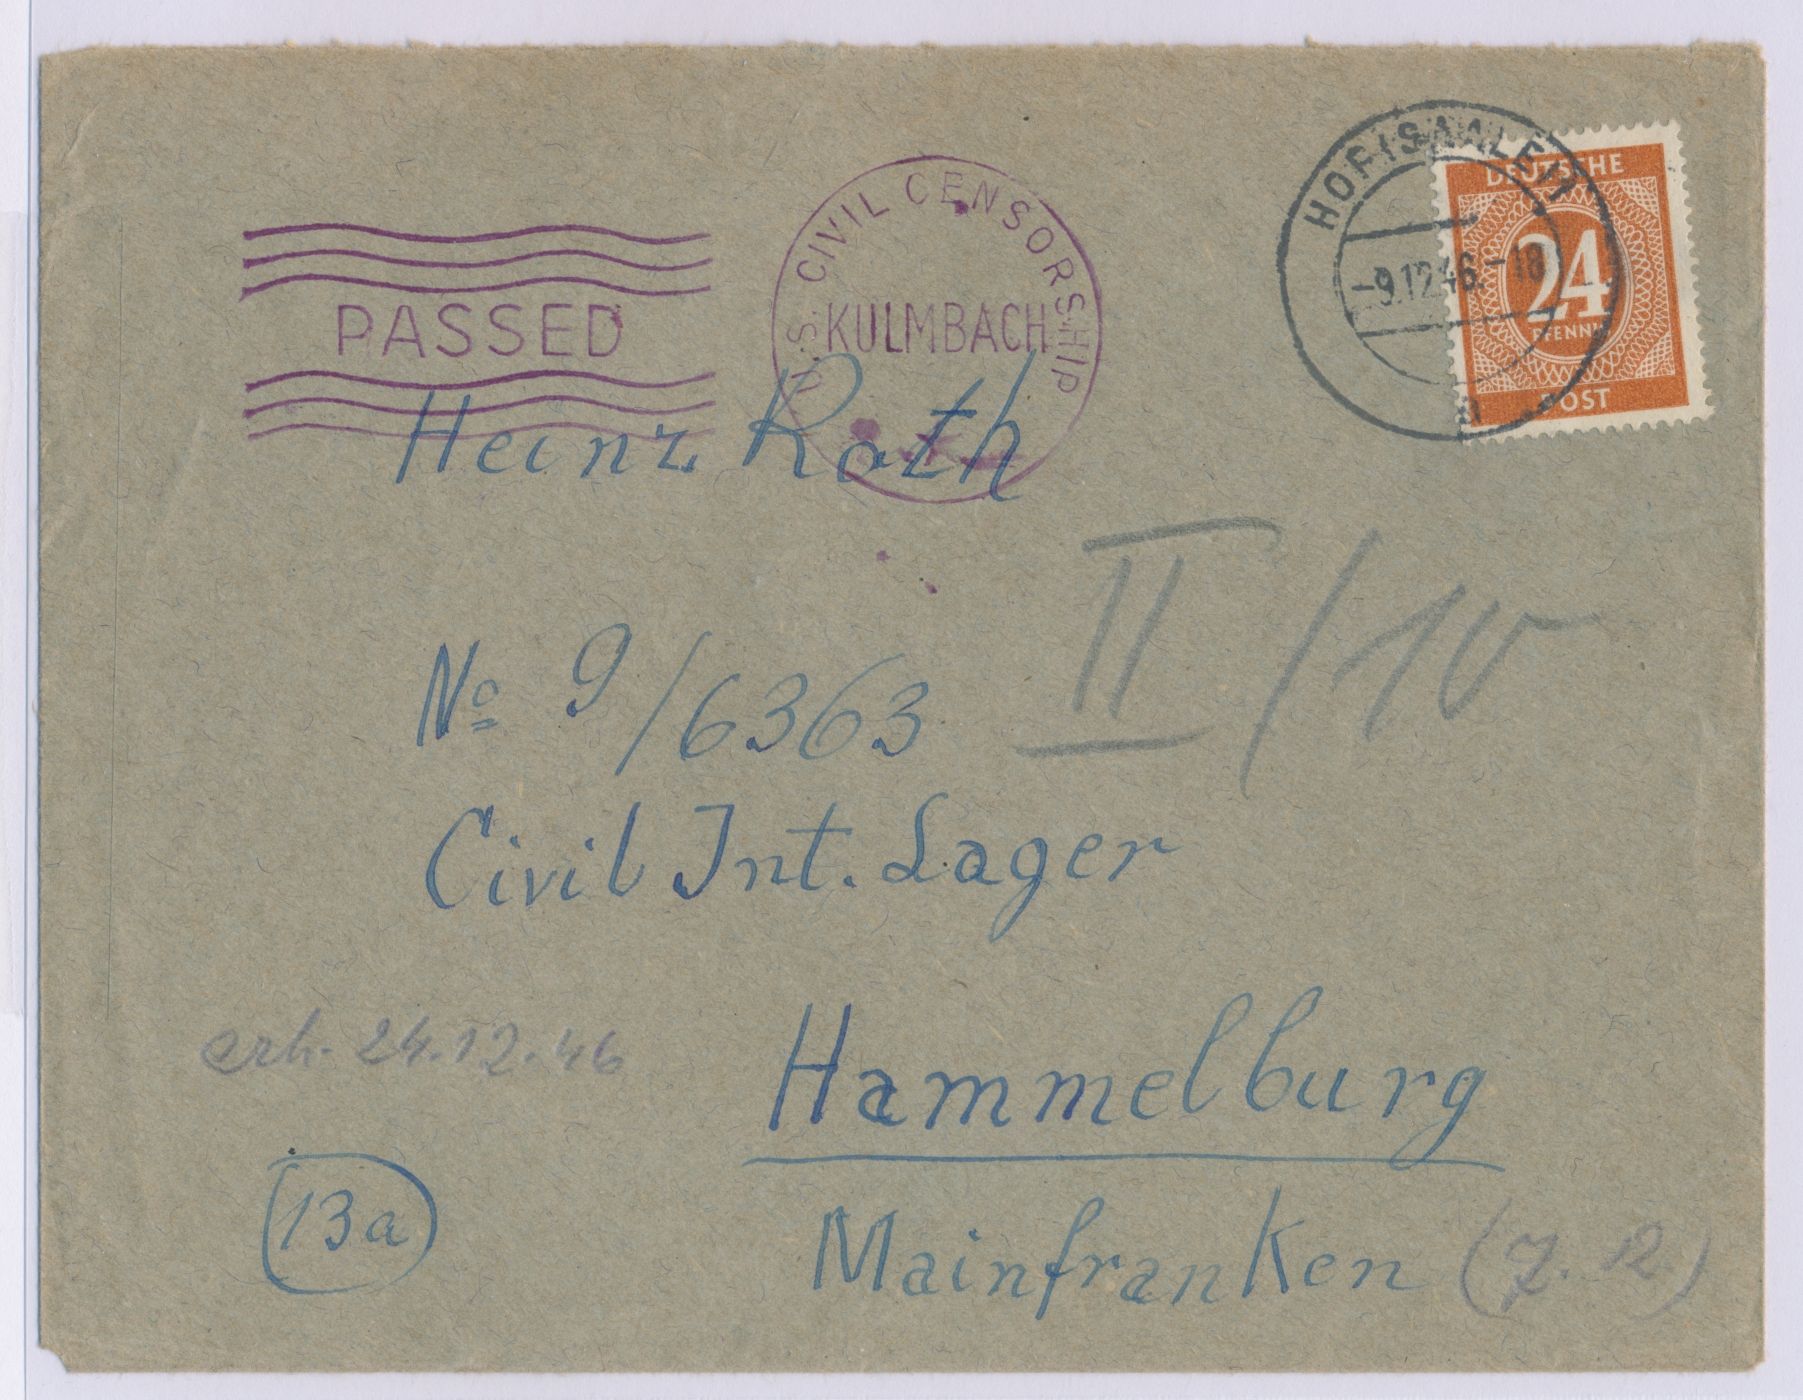 HOF(SAALE)1
-9.12.46.-18
n
DEUTSCHE
24
PFENNIG
POST
U.S. CIVIL CENSORSHIP
KULMBACH
PASSED
Heinz Roth
II/10
No 9/6363
Civil Int. Lager
erh. 24.12.46
Hammelburg
13a
Mainfranken (7. 12.)